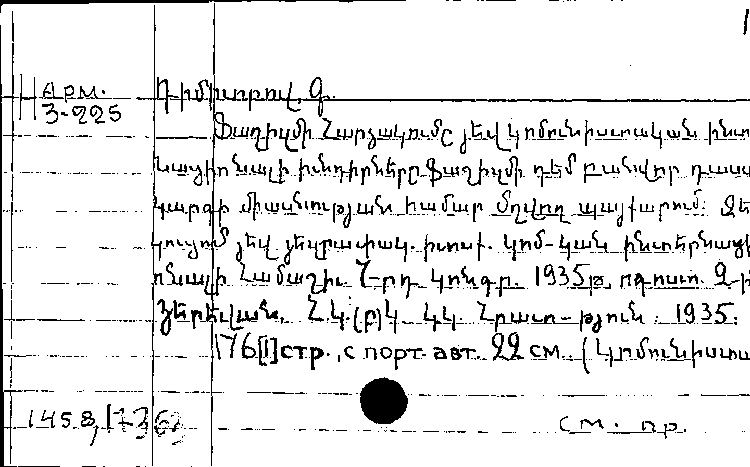 Арм.
3-225
Դիմիտրով, Գ.
Ֆաշիզմի Հարձակումը յեվ կոմունիստական ինտ
նացիոնալի խնդիրները ֆաշիզմի դեմ բանվոր դասա
կարգի միասնության համար մղվող պայքարում: Զե
կուցում յեվ յեզրափակ. խոսք. կոմ-կան ինտերնացի
ոնալի Համաշխ. 7-րդ կոնգր. 1935թ. ոգոստ. 2-ի
Յերեվան, Հ.Կ.(բ)Կ ԿԿ Հրատ-թյուն. 1935.
176[1]стр., с порт. авт. 22 см. (Կոմունիստա
см. пр.